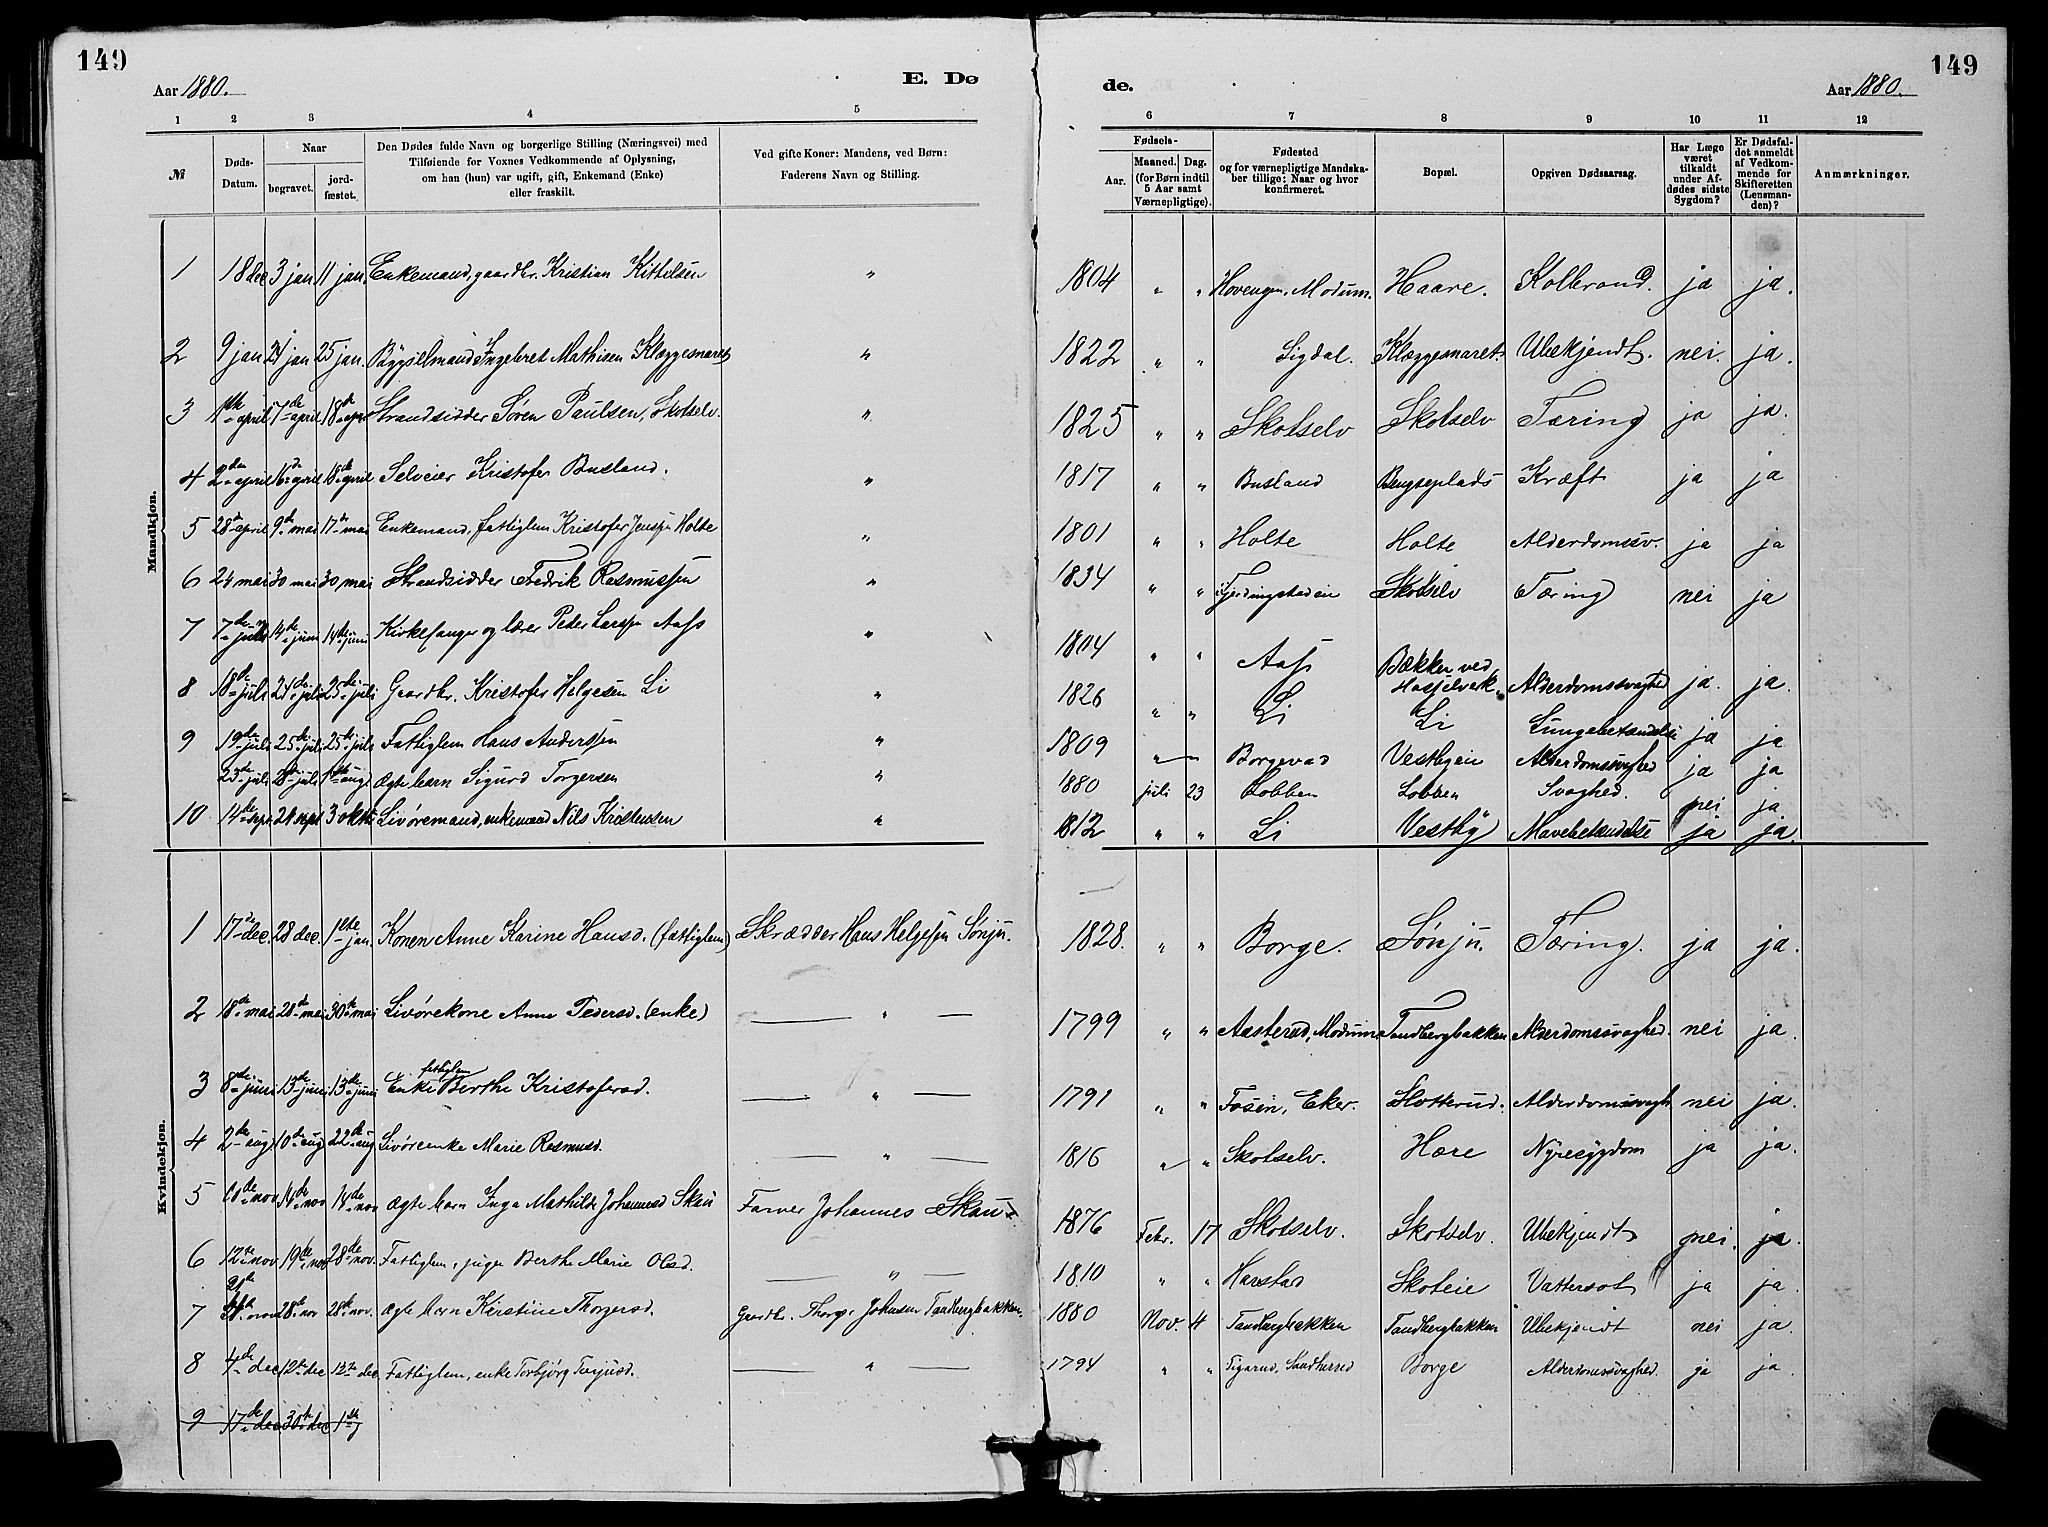 149
149
Aar 1880.
E. Dø
de.
Aar 1880.
1 2 3 4 5
6 7 8 9 10 11 12
№ Døds-Datum. Naar begravet. jord-fæstet. Den Dødes fulde Navn og borgerlige Stilling (Næringsvei) med Tilføiende for Voxnes Vedkommende af Oplysning, om han (hun) var ugift, gift, Enkemand (Enke) eller fraskilt. Ved gifte Koner: Mandens, ved Børn: Faderens Navn og Stilling.
Fødsels- Aar. Maaned. Dag. (for Børn indtil 5 Aar samt Værnepligtige). Fødested og for værnepligtige Mandska-ber tillige: Naar og hvor konfirmeret. Bopæl. Opgiven Dødsaarsag. Har Læge været tilkaldt under Af-dødes sidste Sygdom? Er Dødsfal-det anmeldt af Vedkom-mende for Skifteretten (Lensman-den)? Anmærkninger.
Mandkjøn.
1 18 dec 3 jan 11 jan Enkemand, gaardbr. Kristian Kittelsen " 1804 " " Hovengen, Modum. Haare. Kolbrand. ja ja.
2 9 jan 24 jan 25 jan. Bygselmand Ingebret Mathisen Klæggesmaret " 1822 " " Sigdal. Klæggesmaret. Ubekjendt. nei. ja.
3 1ste april 7de april 18de apr Strandsidder Søren Paulsen, Skotselv. " 1825 " " Skotselv Skotselv Tæring ja ja.
4 2den april 16de april 18de april Selveier Kristofer Busland. " 1817 " " Busland Kræft ja ja
5 28de april 9de mai 17de mai Enkemand, fattiglem Kristofer Jensen Holte " 1801 " " Holte Holte Alderdomssv. ja ja
6 24 mai 30 mai 30 mai Strandsidder Fredrik Rasmussen " 1834 " " Fjerdingstaden Skotselv Tæring nei ja
7 7de 14de juni 14de juni Kirkesanger og lærer Peder Larsen Aass " 1804 " " Aass Bækken ved Alderdomssvaghed ja. ja.
8 18de juli 24de juli 25de juli Gaardbr. Kristofer Helgesen Li " 1826 " " Li Li Lungebetændelse ja ja
9 19de juli 25de juli 25de juli Fattiglem Hans Anderssen " 1809 " " Borgevad Vesthgen Alderdomssvaghed ja ja
23de juli 28de juli 1ste aug Ægte barn Sigurd Torgersen " 1880 juli 23 Lobben Lobben Svaghed. nei ja
10 14de sept 24 sept 3 okt Livøremand, enkemand Nils Kristensen " 1812 " " Li Vestby Mavebetændelse ja ja.
Kvindekjøn.
1 17de dec. 28 dec. 1ste jan. Konen Anne Karine Hansd. (fattiglem) Skrædder Hans Helgesen Sønju. 1828. " " Borge. Sønju. Tæring. ja ja.
2 18de mai 28de mai 30te mai Livørekone Anne Pedersd. (enke) " 1799 " " Aasterud, Modum Tandbergbakken Alderdomssvaghed. nei ja.
3 8de juni 13de juni 13de juni Enke fattiglem Berthe Kristofersd. " 1791 " " Fosen, Eker. Slotterud. Alderdomssvagh. nei ja.
4 2de aug 10de aug 22de aug Livøreenke Marie Rasmusd. " 1816 " " Skotselv. Hære Nyresygdom ja ja.
5 10de nov 14de nov 14de nov Ægte barn Inga Mathilde Johannesd Skau Farver Johannes Skau 1876 Febr. 17 Skotselv. Skotselv. Ubekjendt nei. ja.
6 12te nov 19de nov 28de nov. Fattiglem, pige Berthe Marie Olsd. " 1810 " " Harstad Skoteie Vattersot ja ja.
7 nov 28de nov 28de nov. Ægte barn Kirstine Thorgersd. Gaardbr. Thorg. Johnsen Tandbergbakken. 1880 Nov. 4 Tandbergbakken Tandbergbakken Ubekjendt nei ja.
8 4de dec 12te dec 12te dec. Fattiglem, enke Torbjørg Terjusd. " 1794 " " Borge Alderdomssvaghed. ja ja.
9 17de dec 30te dec 1ste j